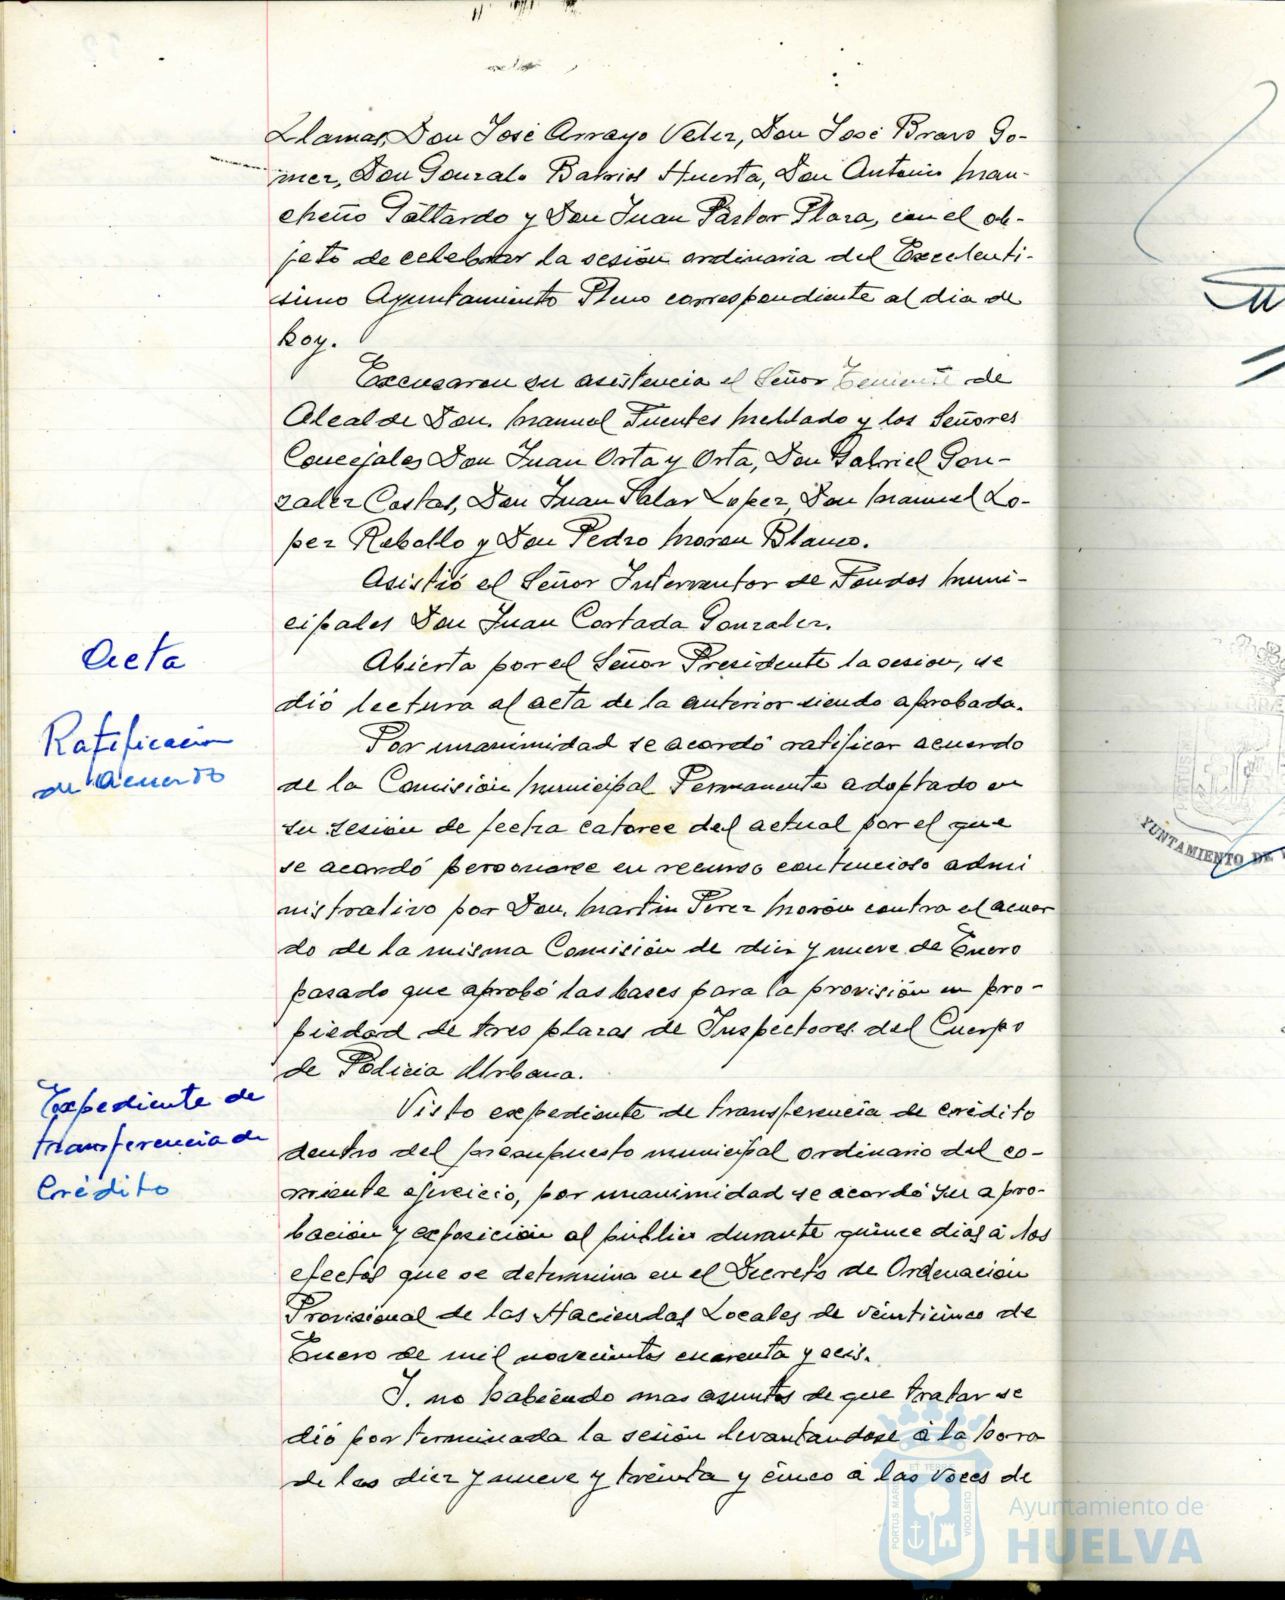 Llamas, Don José Arrayo Velez, Don José Bravo Go-
mez, Don Gonzalo Barrios Huerta, Don Antonio Man-
cheño Gallardo y Don Juan Pastor Plaza, con el ob-
jeto de celebrar la sesión ordinaria del Excelentí-
simo Ayuntamiento Pleno correspondiente al dia de
hoy.
Excusaron su asistencia el Señor Teniente de
Alcalde Don Manuel Fuentes Mellado y los Señores
Concejales Don Juan Orta y Orta, Don Gabriel Gon-
zalez Costas, Don Juan Salar Lopez, Don Manuel Lo-
pez Rebollo y Don Pedro Moron Blanco.
Asistió el Señor Interventor de Fondos Muni-
cipales Don Juan Cortada Gonzalez.
Acta
Abierta por el Señor Presidente la sesion, se
dió lectura al acta de la anterior siendo aprobada.
Ratificación
de acuerdo
Por unanimidad se acordó ratificar acuerdo
de la Comisión Municipal Permanente adoptado en
su sesión de fecha catorce del actual por el que
se acordó personarse en recurso contencioso admi
nistrativo por Don Martin Perez Morón contra el acuer
do de la misma Comisión de diez y nueve de Enero
pasado que aprobó las bases para la provisión en pro-
piedad de tres plazas de Inspectores del Cuerpo
de Policia Urbana.
Expediente de
transferencia de
Crédito
Visto expediente de transferencia de crédito
dentro del presupuesto municipal ordinario del co-
rriente ejercicio, por unanimidad se acordó su apro-
bación y exposición al publico durante quince dias á los
efectos que se determina en el Decreto de Ordenación
Provisional de las Haciendas Locales de veinticinco de
Enero de mil novecientos cuarenta y seis.
Y. no habiendo mas asuntos de que tratar se
dió por terminada la sesión levantandose á la hora
de las diez y nueve y treinta y cinco á las voces de
YUNTAMIENTO DE
PORTUS MARIS ET TERRE CUSTODIA
Ayuntamiento de
HUELVA